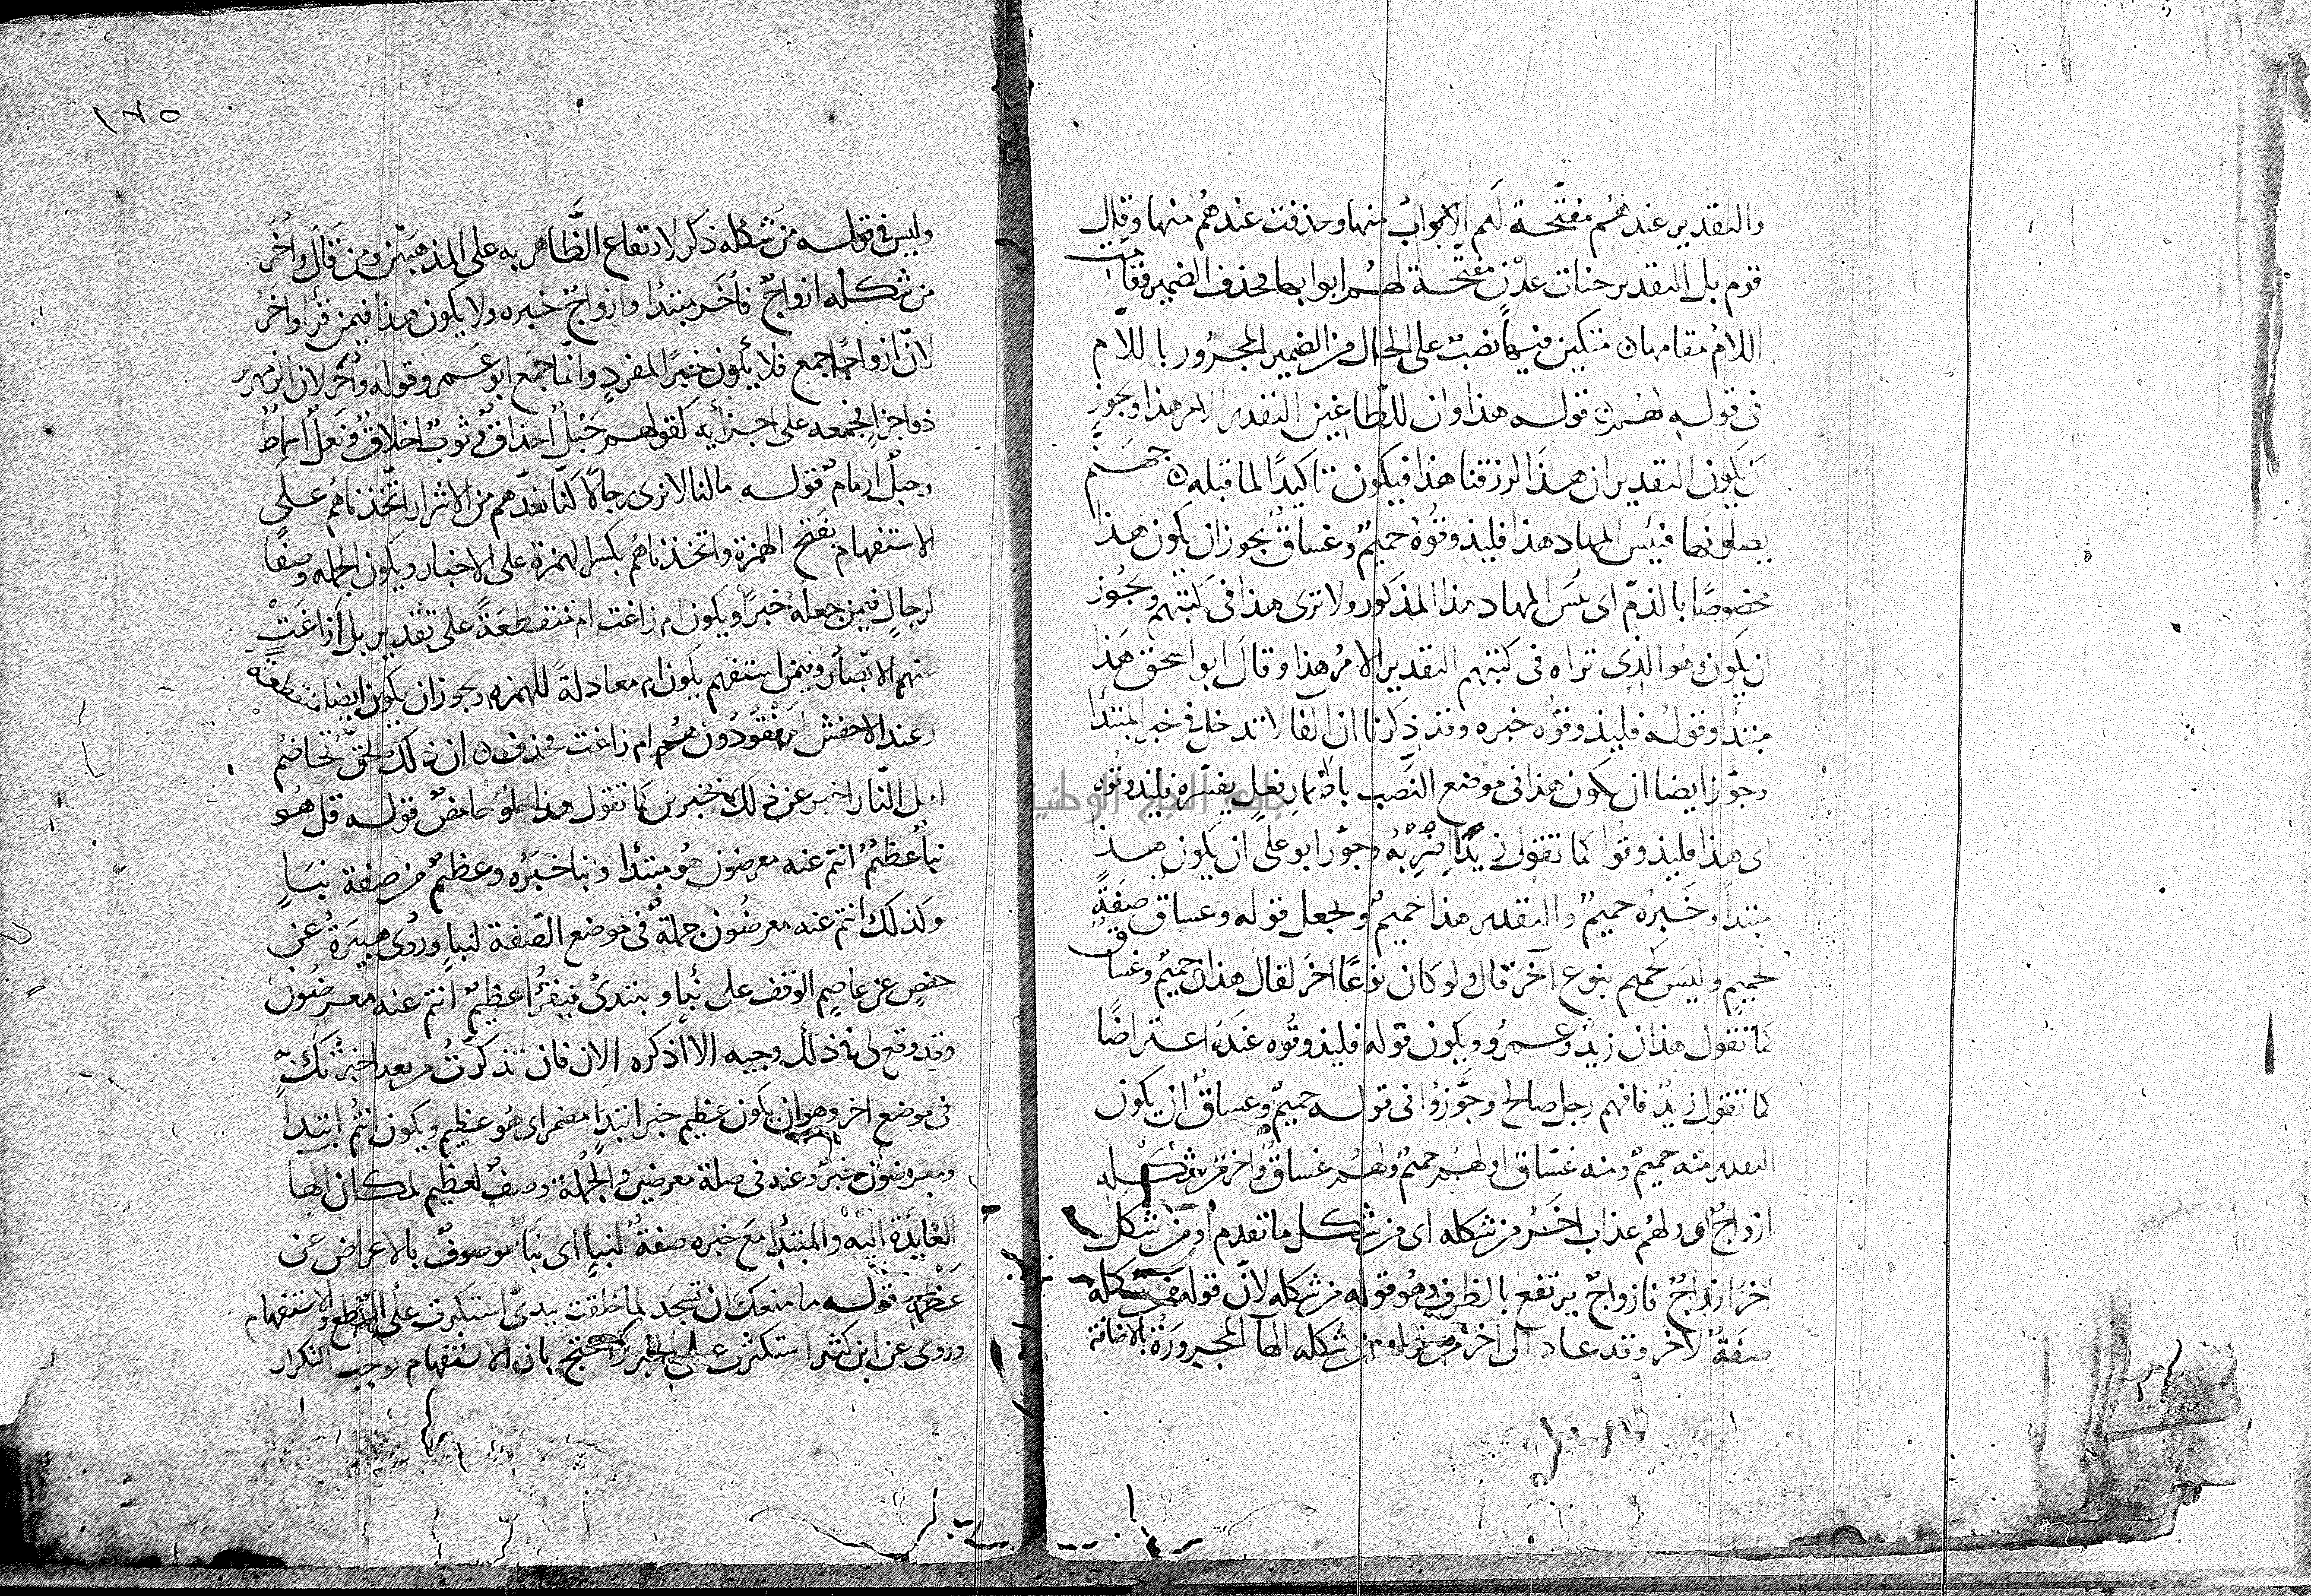 والتقدير عندهم مفتحة لهم الابواب منها وحذفت عندهم منها وقال
قوم بل التقدير جنات عدن مفتحة لهم ابوابها فحذف الضمير فقامت
اللام مقامها متكين فيها نصب على الحال من الضمير المجرور باللام
فى قوله لهم قوله هذا وان للطاغين التقدير الامر هذا ويجوز
ان يكون التقدير ان هذا لرزقنا هذا فيكون تاكيدًا لما قبله جهنم
يصلونها فبئس المهاد هذا فليذوقوه حميمٌ وغساقٌ يجوز ان يكون هذا
مخصوصًا بالذمّ اى بئس المهاد هذا المذكور ولا ترى هذا فى كتبهم ويجوز
ان يكون وهو الذى تراه فى كتبهم التقدير الامرُ هذا وقال ابو اسحق هذا
مبتدا وقوله فليذوقوه خبره وقد ذكرنا ان الفا لا تدخل فى خبر المبتدا
وجوّز ايضا ان يكون هذا فى موضع النصب باضمار فعلٍ يفسّره فليذوقوه
اى هذا فليذوقوا كما تقول زيدًا اضربه وجوّز ابو على ان يكون هذا
مبتدا وخبره حميمٌ والتقدير هذا حميمٌ وجعل قوله وغساق صفةً
لحميمٍ وليس لحميم بنوع آخر قال ولو كان نوعًا اخر لقال هذان حميمٌ وغساق
كما تقول هذان زيدٌ وعمرو ويكون قوله فليذوقوه عنده اعتراضًا
كما تقول زيدٌ فافهم رجل صالح وجوّزوا فى قوله حميمٌ وغساقٌ ان يكون
التقدير منه حميمٌ ومنه غسّاق او لهم حميمٌ ولهم غساقٌ واخر من شكله
ازواجٌ اى ولهم عذاب اخر من شكله اى من شكل ما تقدم او من شكل
اخر ازواجٌ فازواجٌ يرتفع بالظرف وهو قوله من شكله لانّ قوله من شكله
صفةٌ لاخر وقد عاد الى آخر من قوله من شكله الها المجرورة بالاضافة
جامعة النجاح الوطنية
١٢٥
وليس فى قوله من شكله ذكر لارتفاع الظّاهر به على المذهبين ومن قال واُخَر
من شكله ازواجٌ فاُخَر مبتدا وازواجٌ خبره ولا يكون هذا فيمن قرأ واخر
لانّ ازواجًا جمع فلا يكون خبرًا لمفردٍ وانّما جمع ابو عمرو قوله واُخَر لان الزمهرير
ذو اجزا فجمعه على اجزأيه كقولهم حبلٌ احذاق وثوبٌ اخلاقٌ ونعلٌ اسماطٌ
وحبلٌ ارمامٌ قوله مالنا لا نرى رجالًا كنّا نعدّهم من الاشرار اتّخذناهم على
الاستفهام بفتح الهمزة واتخذناهم بكسر الهمزة على الاخبار ويكون الجملة وصفًا
لرجالٍ فيمن جعله خبرًا ويكون ام زاغت ام منقطعةً على تقدير بل أزاغت
عنهم الابصار وفيمن استفهم يكون ام معادلةً للهمزة ويجوز ان يكون ايضا منقطعة
وعند الاخفش امفقودون هم ام زاغت فحذف ان ذلك لحقّ تخاصم
اهل النّار اخبر عن ذلك بخبرين كما تقول هذا حلوٌ حامضٌ قوله قل هو
نبأٌ عظيمٌ انتم عنه معرضون هو مبتدا ونبا خبره وعظيمٌ من صفة نبإٍ
وكذلك انتم عنه معرضون جملةٌ فى موضع الصّفة لنبإ وروى هبيرة عن
حفصٍ عن عاصمٍ الوقف على نبأ ويبتدئ فيقرأ عظيمٌ انتم عنه معرضون
وقد وقع لى فى ذلك وجيه الا اذكره الان فان تذكرتُ من بعد اخبرتك به
فى موضع اخر وهو ان يكون عظيم خبر ابتدإ مضمر اى هو عظيم ويكون انتم ابتدا
ومعرضون خبرٌ وعنه فى صلة معرضين والجملة وصفٌ لعظيم لمكان الها
العايدة اليه والمبتدا مع خبره صفةٌ لنبإٍ اى نبأٌ موصوفٌ بالاعراض عن
عظمه قوله ما منعك ان تسجد لما خلقت بيدىّ استكبرت على القطع والاستفهام
وروى عن ابن كثير استكبرت على الخبر واحتج بان الاستفهام يوجب التكرار